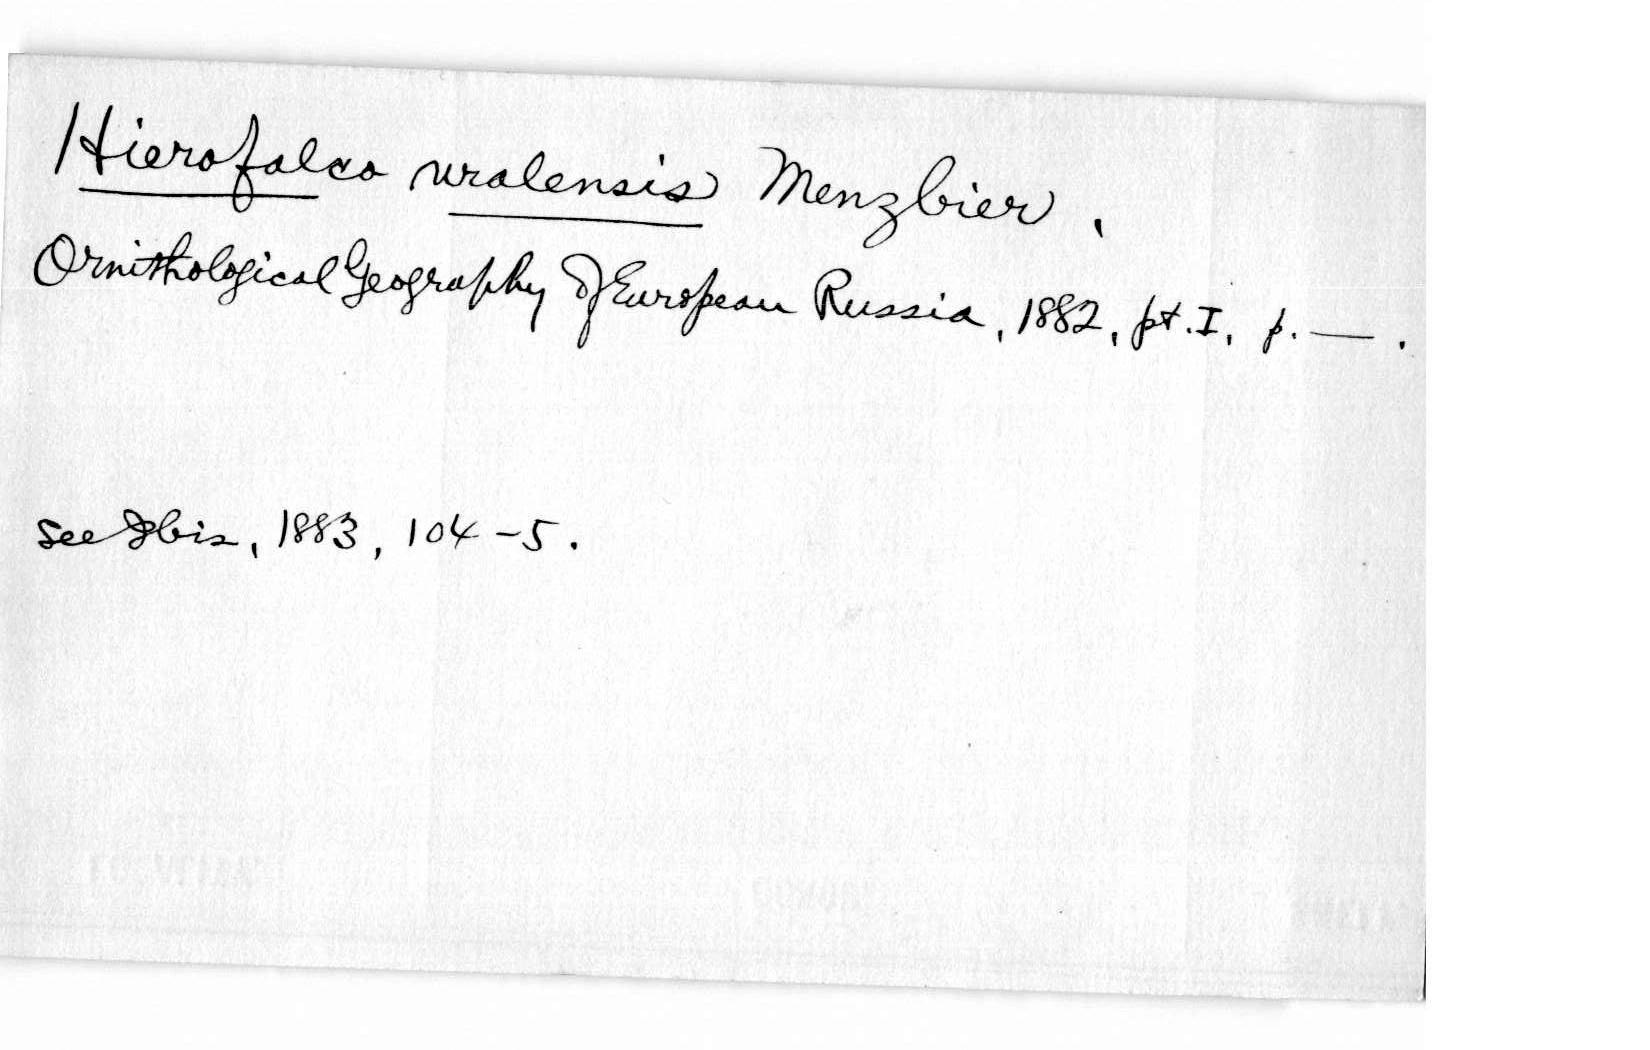 Hierofalco uralensis Menzbier.
Ornithological Geography of European Russia, 1882, pt. I, p. — .
See Ibis, 1883, 104-5.